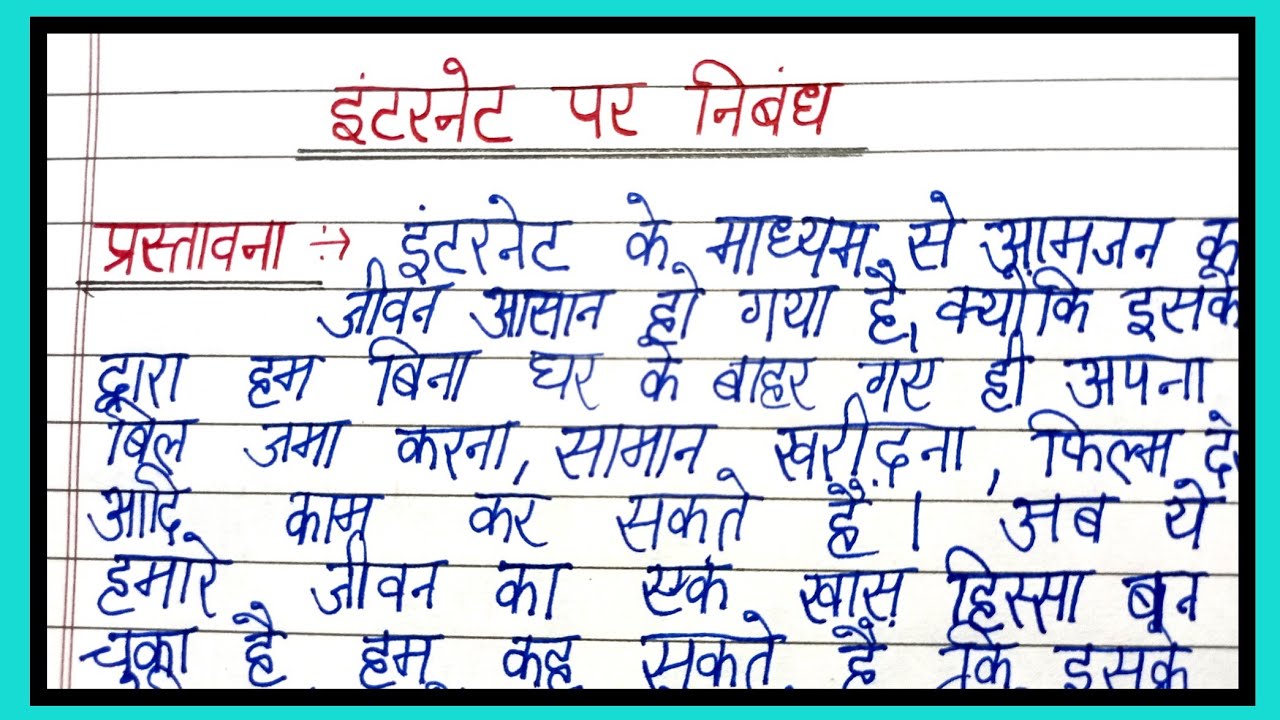 इंटरनेट पर निबंध
प्रस्तावना :→ इंटरनेट के माध्यम से आमजन
जीवन आसान हो गया है, क्योंकि इसके
द्वारा हम बिना घर के बाहर गए ही अपना
बिल जमा करना, सामान खरीदना, फिल्म
आदि काम कर सकते हैं। अब ये
हमारे जीवन का एक खास हिस्सा बन
चुका है हम कह सकते हैं कि इसके